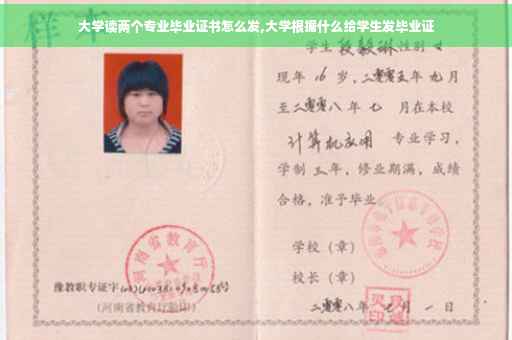 大学读两个专业毕业证书怎么发,大学根据什么给学生发毕业证
样本
学生 段毅琳 性别 女
现年 16 岁,二零零五年 九月
至二零零八年 七 月在本校
计算机应用 专业学习,
学制 三年,修业期满,成绩
合格,准予毕业
学校(章)
校长(章)
二零零八年 七 月 一 日
河南省教育厅
豫教职专证字
(河南省教育厅验印)